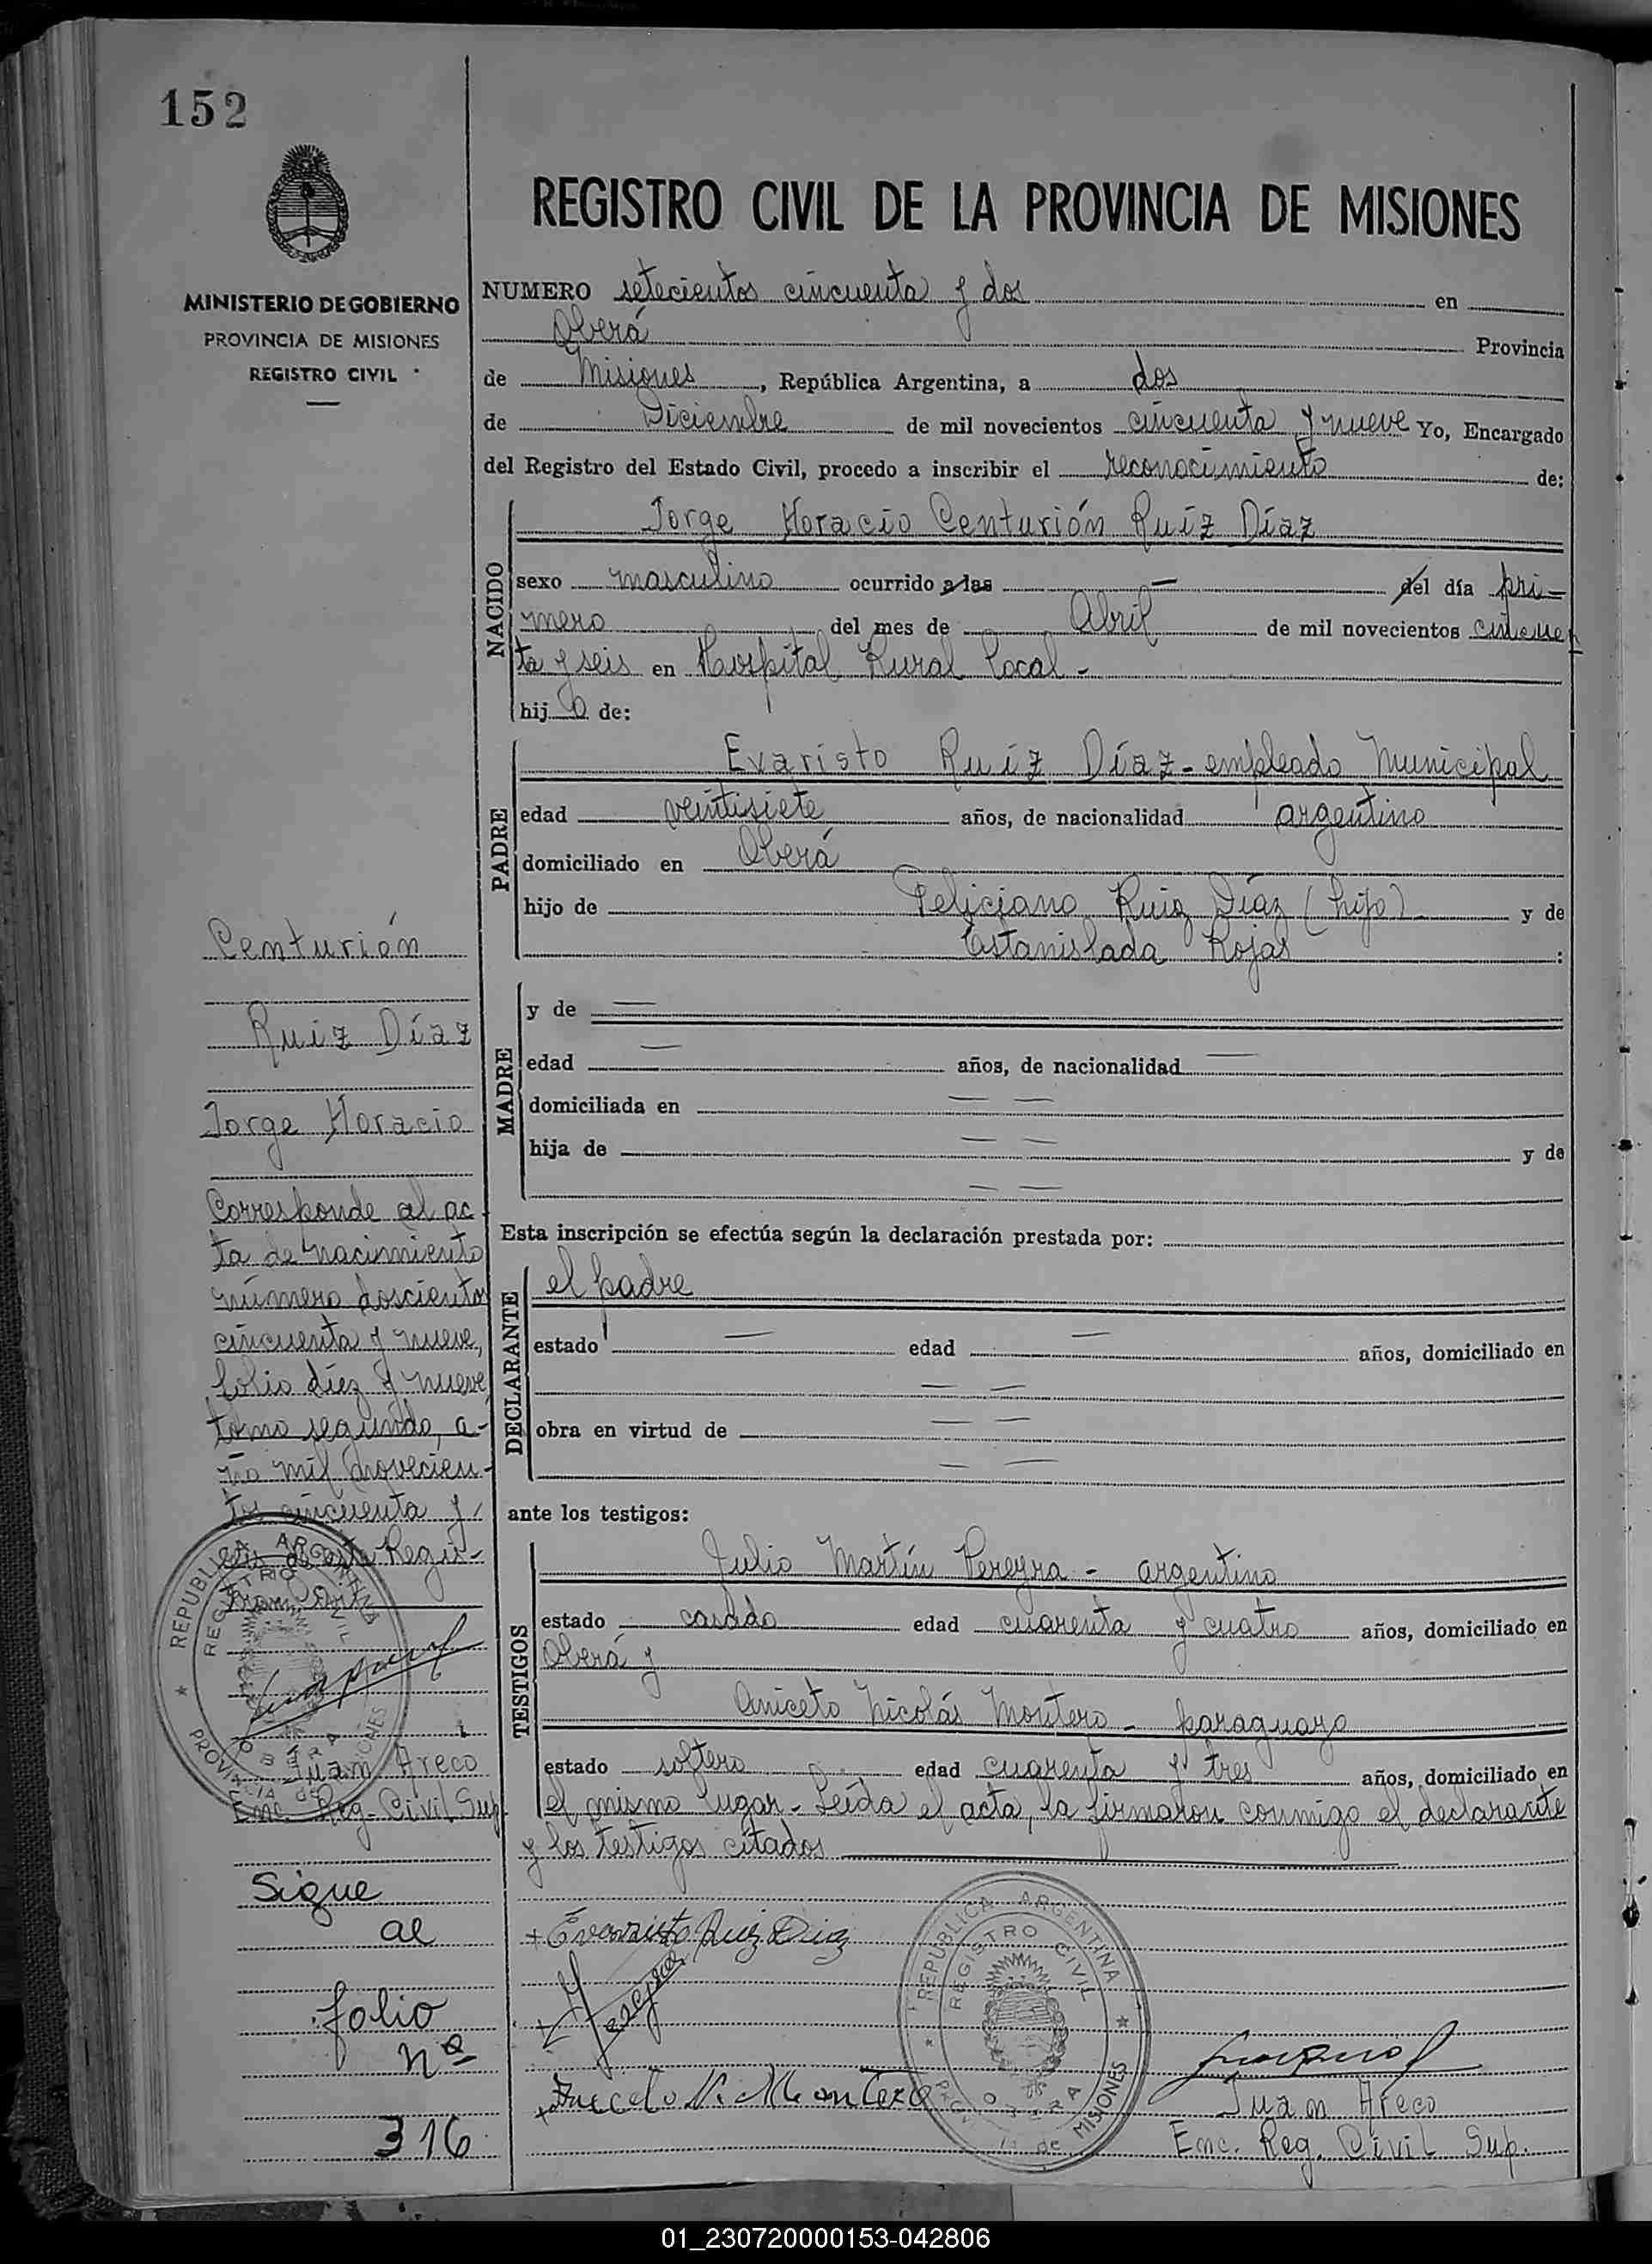 152
MINISTERIO DE GOBIERNO
PROVINCIA DE MISIONES
REGISTRO CIVIL
REGISTRO CIVIL DE LA PROVINCIA DE MISIONES
NUMERO setecientos cincuenta y dos en
Oberá Provincia
de Misiones, República Argentina, a dos
de Diciembre de mil novecientos cincuenta y nueve Yo, Encargado
del Registro del Estado Civil, procedo a inscribir el reconocimiento de:
NACIDO
Jorge Horacio Centurión Ruíz Díaz
sexo masculino ocurrido a las — del día pri-
mero del mes de Abril de mil novecientos cincuen
ta y seis en Hospital Rural Local -
hijo de:
PADRE
Evaristo Ruíz Díaz - empleado Municipal
edad veintisiete años, de nacionalidad argentino
domiciliado en Oberá
hijo de Feliciano Ruiz Díaz (hijo) y de
Estanislada Rojas :
MADRE
y de —
edad — años, de nacionalidad —
domiciliada en — —
hija de — — y de
— —
Esta inscripción se efectúa según la declaración prestada por:
DECLARANTE
el padre
estado — edad — años, domiciliado en
— —
obra en virtud de — —
— —
ante los testigos:
TESTIGOS
Julio Martín Pereyra - argentino
estado casado edad cuarenta y cuatro años, domiciliado en
Oberá y
Aniceto Nicolás Montero - paraguayo
estado soltero edad cuarenta y tres años, domiciliado en
el mismo lugar - Leída el acta, la firmaron conmigo el declarante
y los testigos citados
+ Evaristo Ruiz Diaz
Pereyra
+ Aniceto N. Montero
REPUBLICA ARGENTINA
REGISTRO CIVIL
OBERA
PROVINCIA de MISIONES
Juan Areco
Enc. Reg. Civil Sup.
Centurión
Ruiz Díaz
Jorge Horacio
Corresponde al ac
ta de nacimiento
número doscientos
cincuenta y nueve,
folio diez y nueve
tomo segundo, a-
ño mil novecien-
tos cincuenta y
seis de este Regis-
tro Civil
REPUBLICA ARGENTINA
REGISTRO CIVIL
OBERA
PROVINCIA de MISIONES
Juan Areco
Enc. Reg. Civil Sup.
Sigue
al
folio
nº
316
01_230720000153-042806